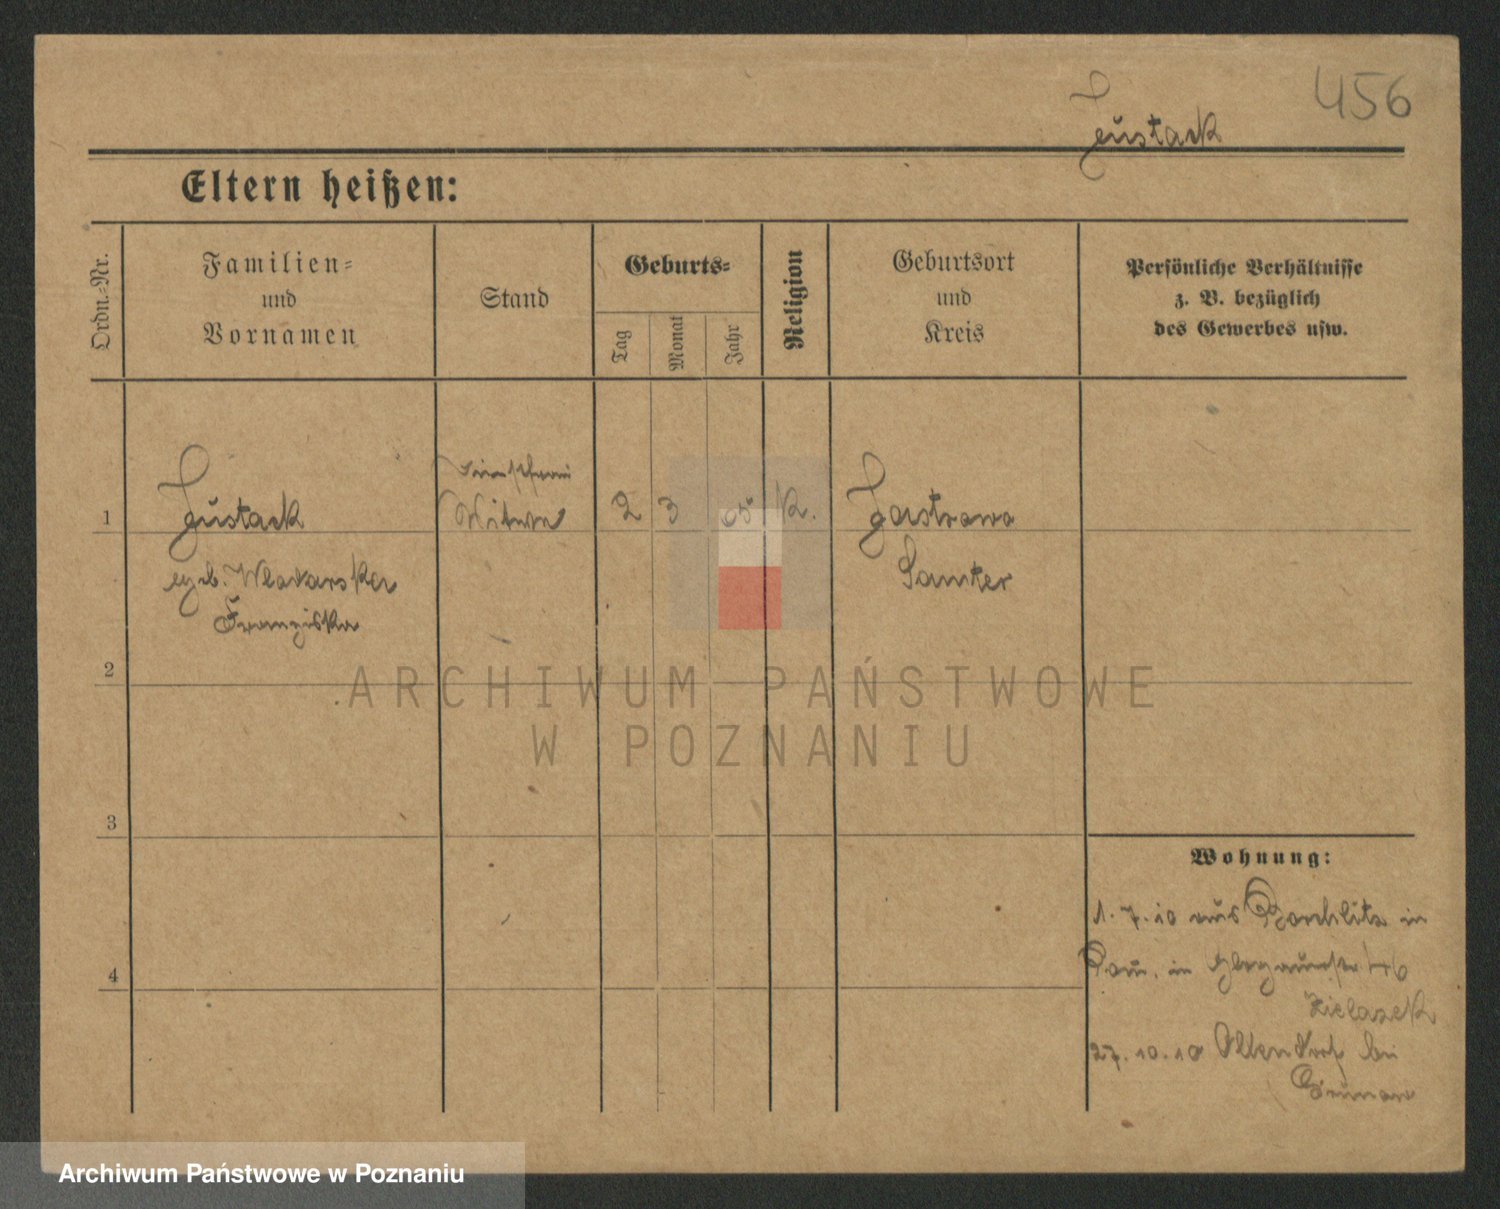 456
Justack
Eltern heißen:
Ordn.-Nr.
Familien-
und
Vornamen
Stand
Geburts-
Tag
Monat
Jahr
Religion
Geburtsort
und
Kreis
Persönliche Verhältnisse
z. B. bezüglich
des Gewerbes usw.
1
Justack
geb. Wlodarska
Franziska
Witwe
2
3
65
K.
Jastrowo
Samter
2
3
4
ARCHIWUM PAŃSTWOWE
W POZNANIU
Wohnung:
1. 7. 10 aus in
in
Zielazek
27. 10. 10 Altendorf bei
Archiwum Państwowe w Poznaniu